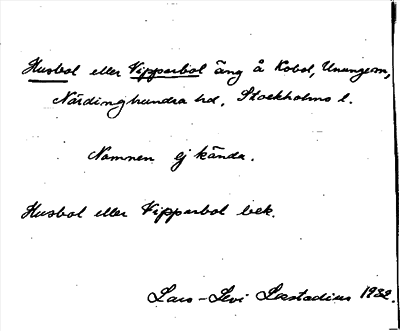 Husbol eller Vipperbol äng å Kobol, Ununge sn,
Närdinghundra hd, Stockholms l.
Namnen ej kända.
Husbol eller Vipperbol bek.
Lars-Levi Læstadius 1932.